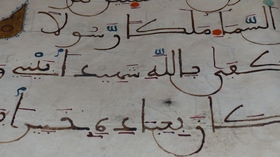 السماء ملكا رسولا
كفى بالله شهيدا بيني
كان بعباده خبيرا